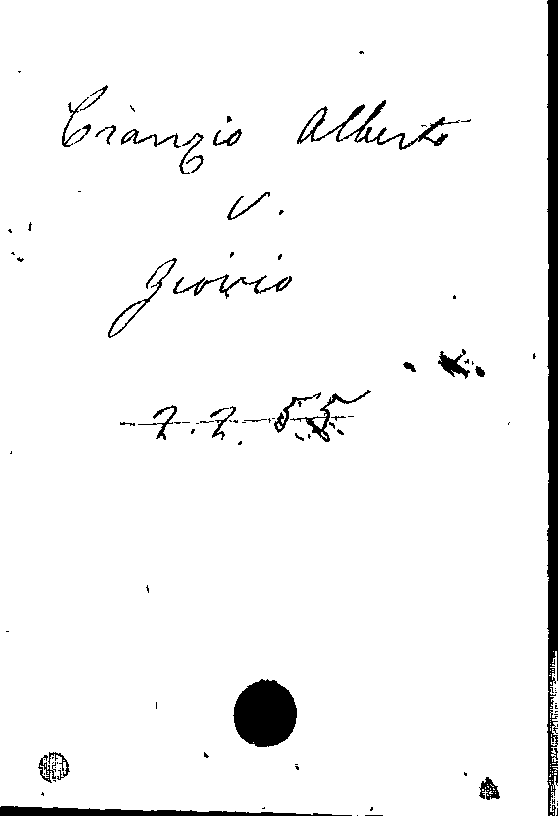 Cranzio Alberto
V.
Giovio
2.2.55